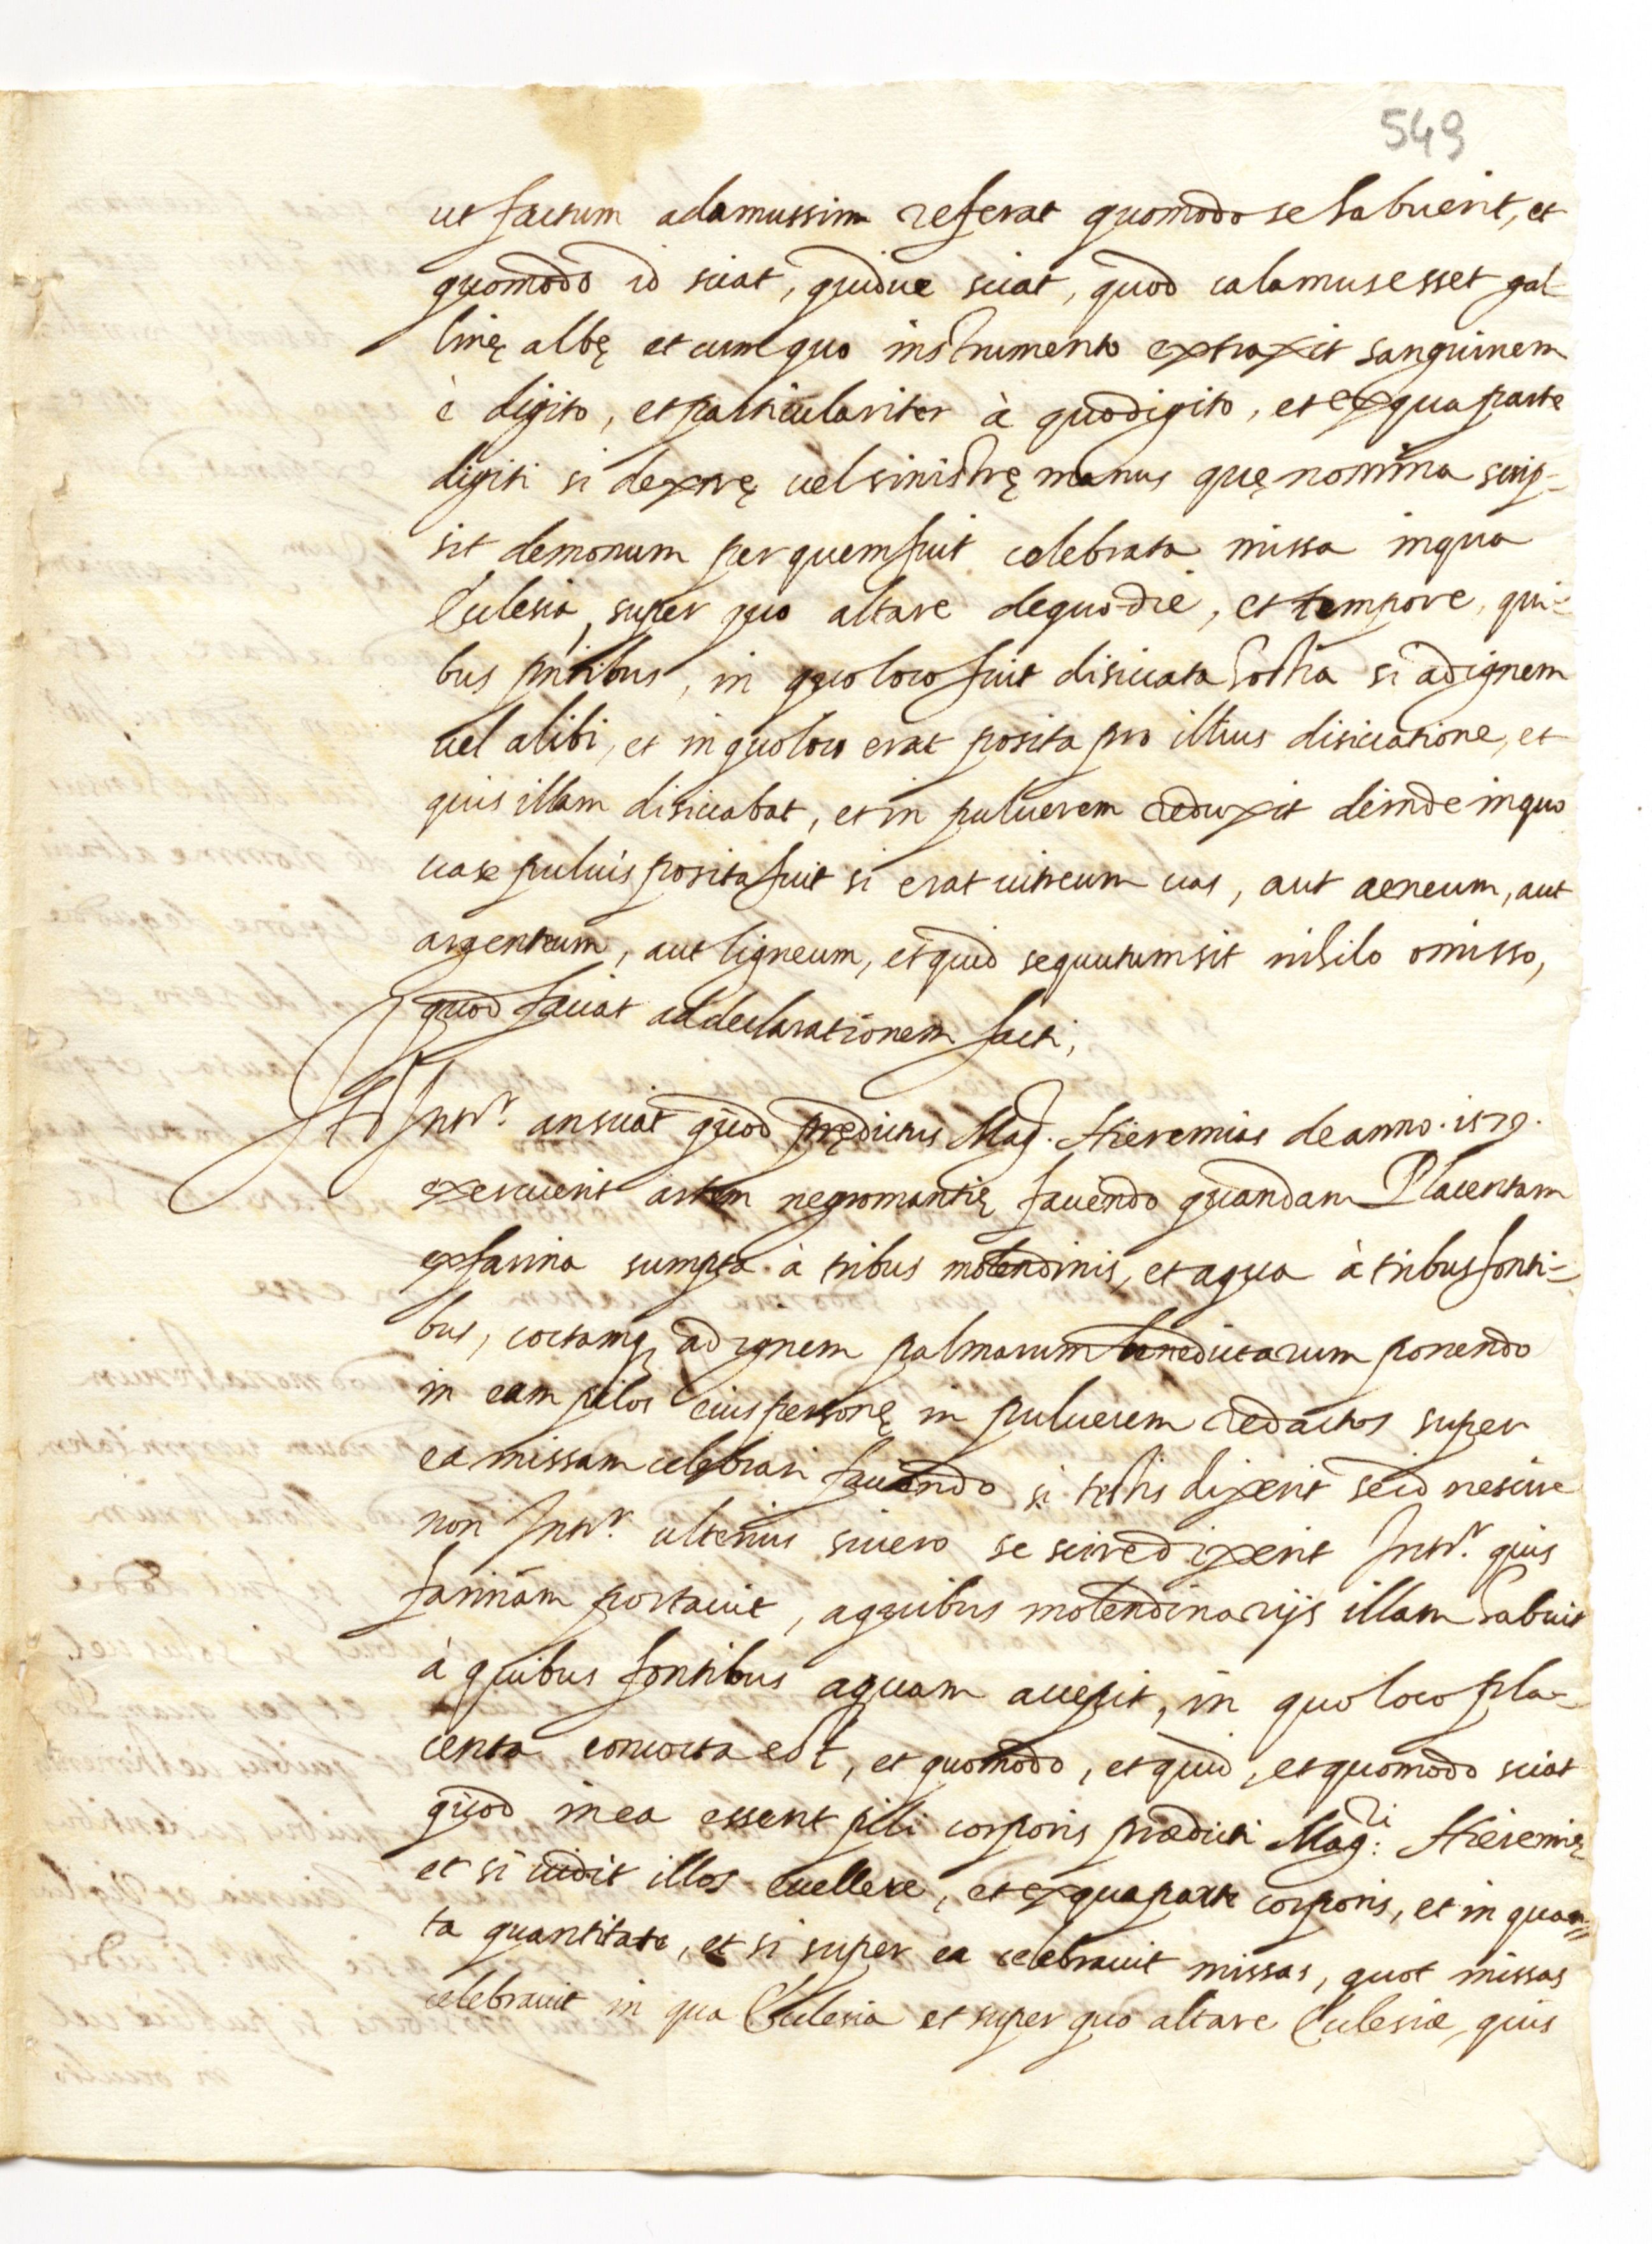 549
ut factum adamussim referat quomodo se habuerit, et
quomodo id sciat, quidue sciat, quod calamus esset gal-
linę albę et cum quo instrumento extraxit sanguinem
è digito, et particulariter à quo digito, et ex qua parte
digiti si dextrę uel sinistrę manus quę nomina scrip-
sit demonum per quem fuit celebrata missa in qua
Ecclesia, super quo altare de quo die, et tempore, qui-
bus pñtibus, in quo loco fuit disiccata hostia si ad ignem
uel alibi, et in quo loco erat posita pro illius disiccatione, et
quis illam disiccabat, et in puluerem reduxit deinde in quo
uase puluis posita fuit si erat uitreum uas, aut aeneum, aut
argenteum, aut ligneum, et quid sequutum sit nihilo omisso,
quod faciat ad declarationem facti,
It Intr. an sciat quod prędictus Mag. Hieremias de anno .1579.
exercuerit artem negromantię faciendo quandam Placentam
ex farina sumpta à tribus molendinis, et aqua à tribus fonti-
bus, coctamq ad ignem palmarum benedictarum ponendo
in eam pilos eius personę in puluerem redactos super
ea missam celebrari faciendo si testis dixerit se id nescire
non Intr. ulterius si uero se scire dixerit Intr. quis
farinam portauit, a quibus molendinarijs illam habuit
à quibus fontibus aquam accepit, in quo loco pla-
centa concocta est, et quomodo, et quid, et quomodo sciat
quod in ea essent pili corporis prædicti Mag.ri Hieremię
et si uidit illos euellere, et ex qua parte corporis, et in quan-
ta quantitate, et si super ea celebrauit missas, quot missas
celebrauit in qua Ecclesia et super quo altare Ecclesiæ, quis